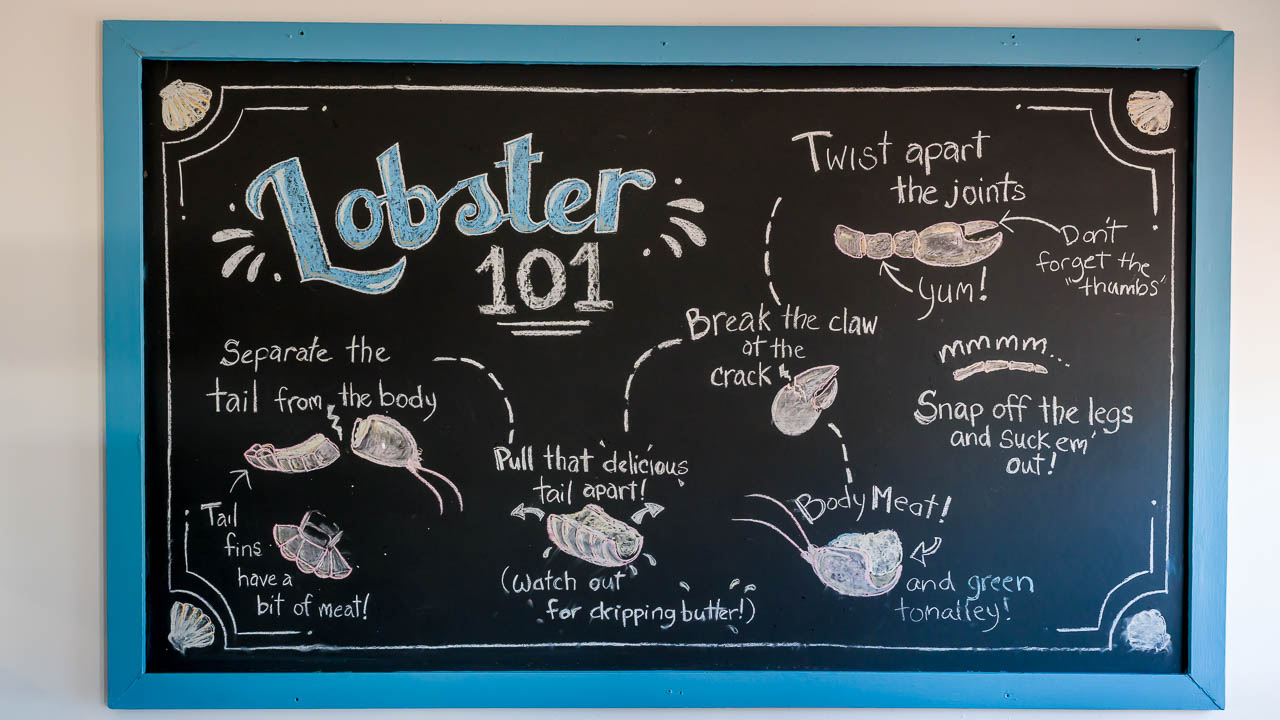 Lobster
101
Separate the
tail from the body
Tail
fins
have a
bit of meat!
Pull that delicious
tail apart!
(watch out
for dripping butter!)
Break the claw
at the
crack
Twist apart
the joints
Don't
forget the
"thumbs"
yum!
mmmm...
Snap off the legs
and suck em'
out!
Body Meat!
and green
tomalley!